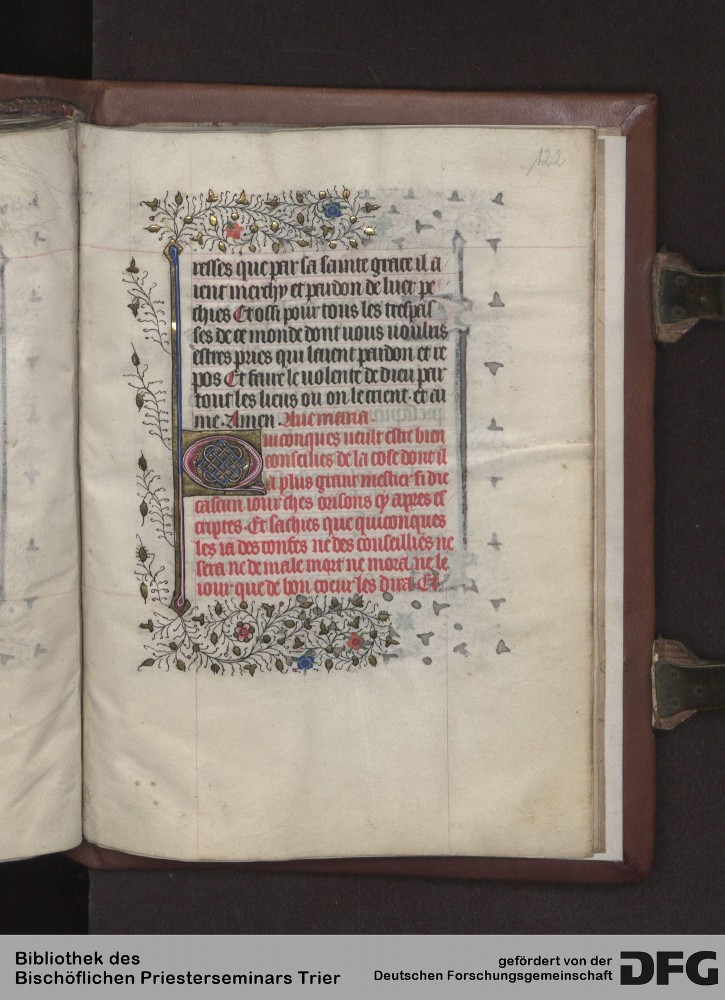 122
resses que par sa sainte grace il a
ient merchy et pardon de luer pe
chies Et ossi pour tous les trespas
ses de ce monde dont uous uoules
estres pries qui leuent pardon et re
pos Et faire le uolente de dieu par
tout les lieus ou on le crient et ai
me. Amen. Aue maria.
Quiconques ueult estre bien
conseilies de la cose dont il
a plus grant mestier si die
cascun iour ches orisons cy apres es
criptes. Et sachies que quiconques
les ia des confes ne des conseillies ne
sera ne de male mort ne morra ne le
iour que de bon coeur les dira. Et
Bibliothek des
Bischöflichen Priesterseminars Trier
gefördert von der
Deutschen Forschungsgemeinschaft
DFG